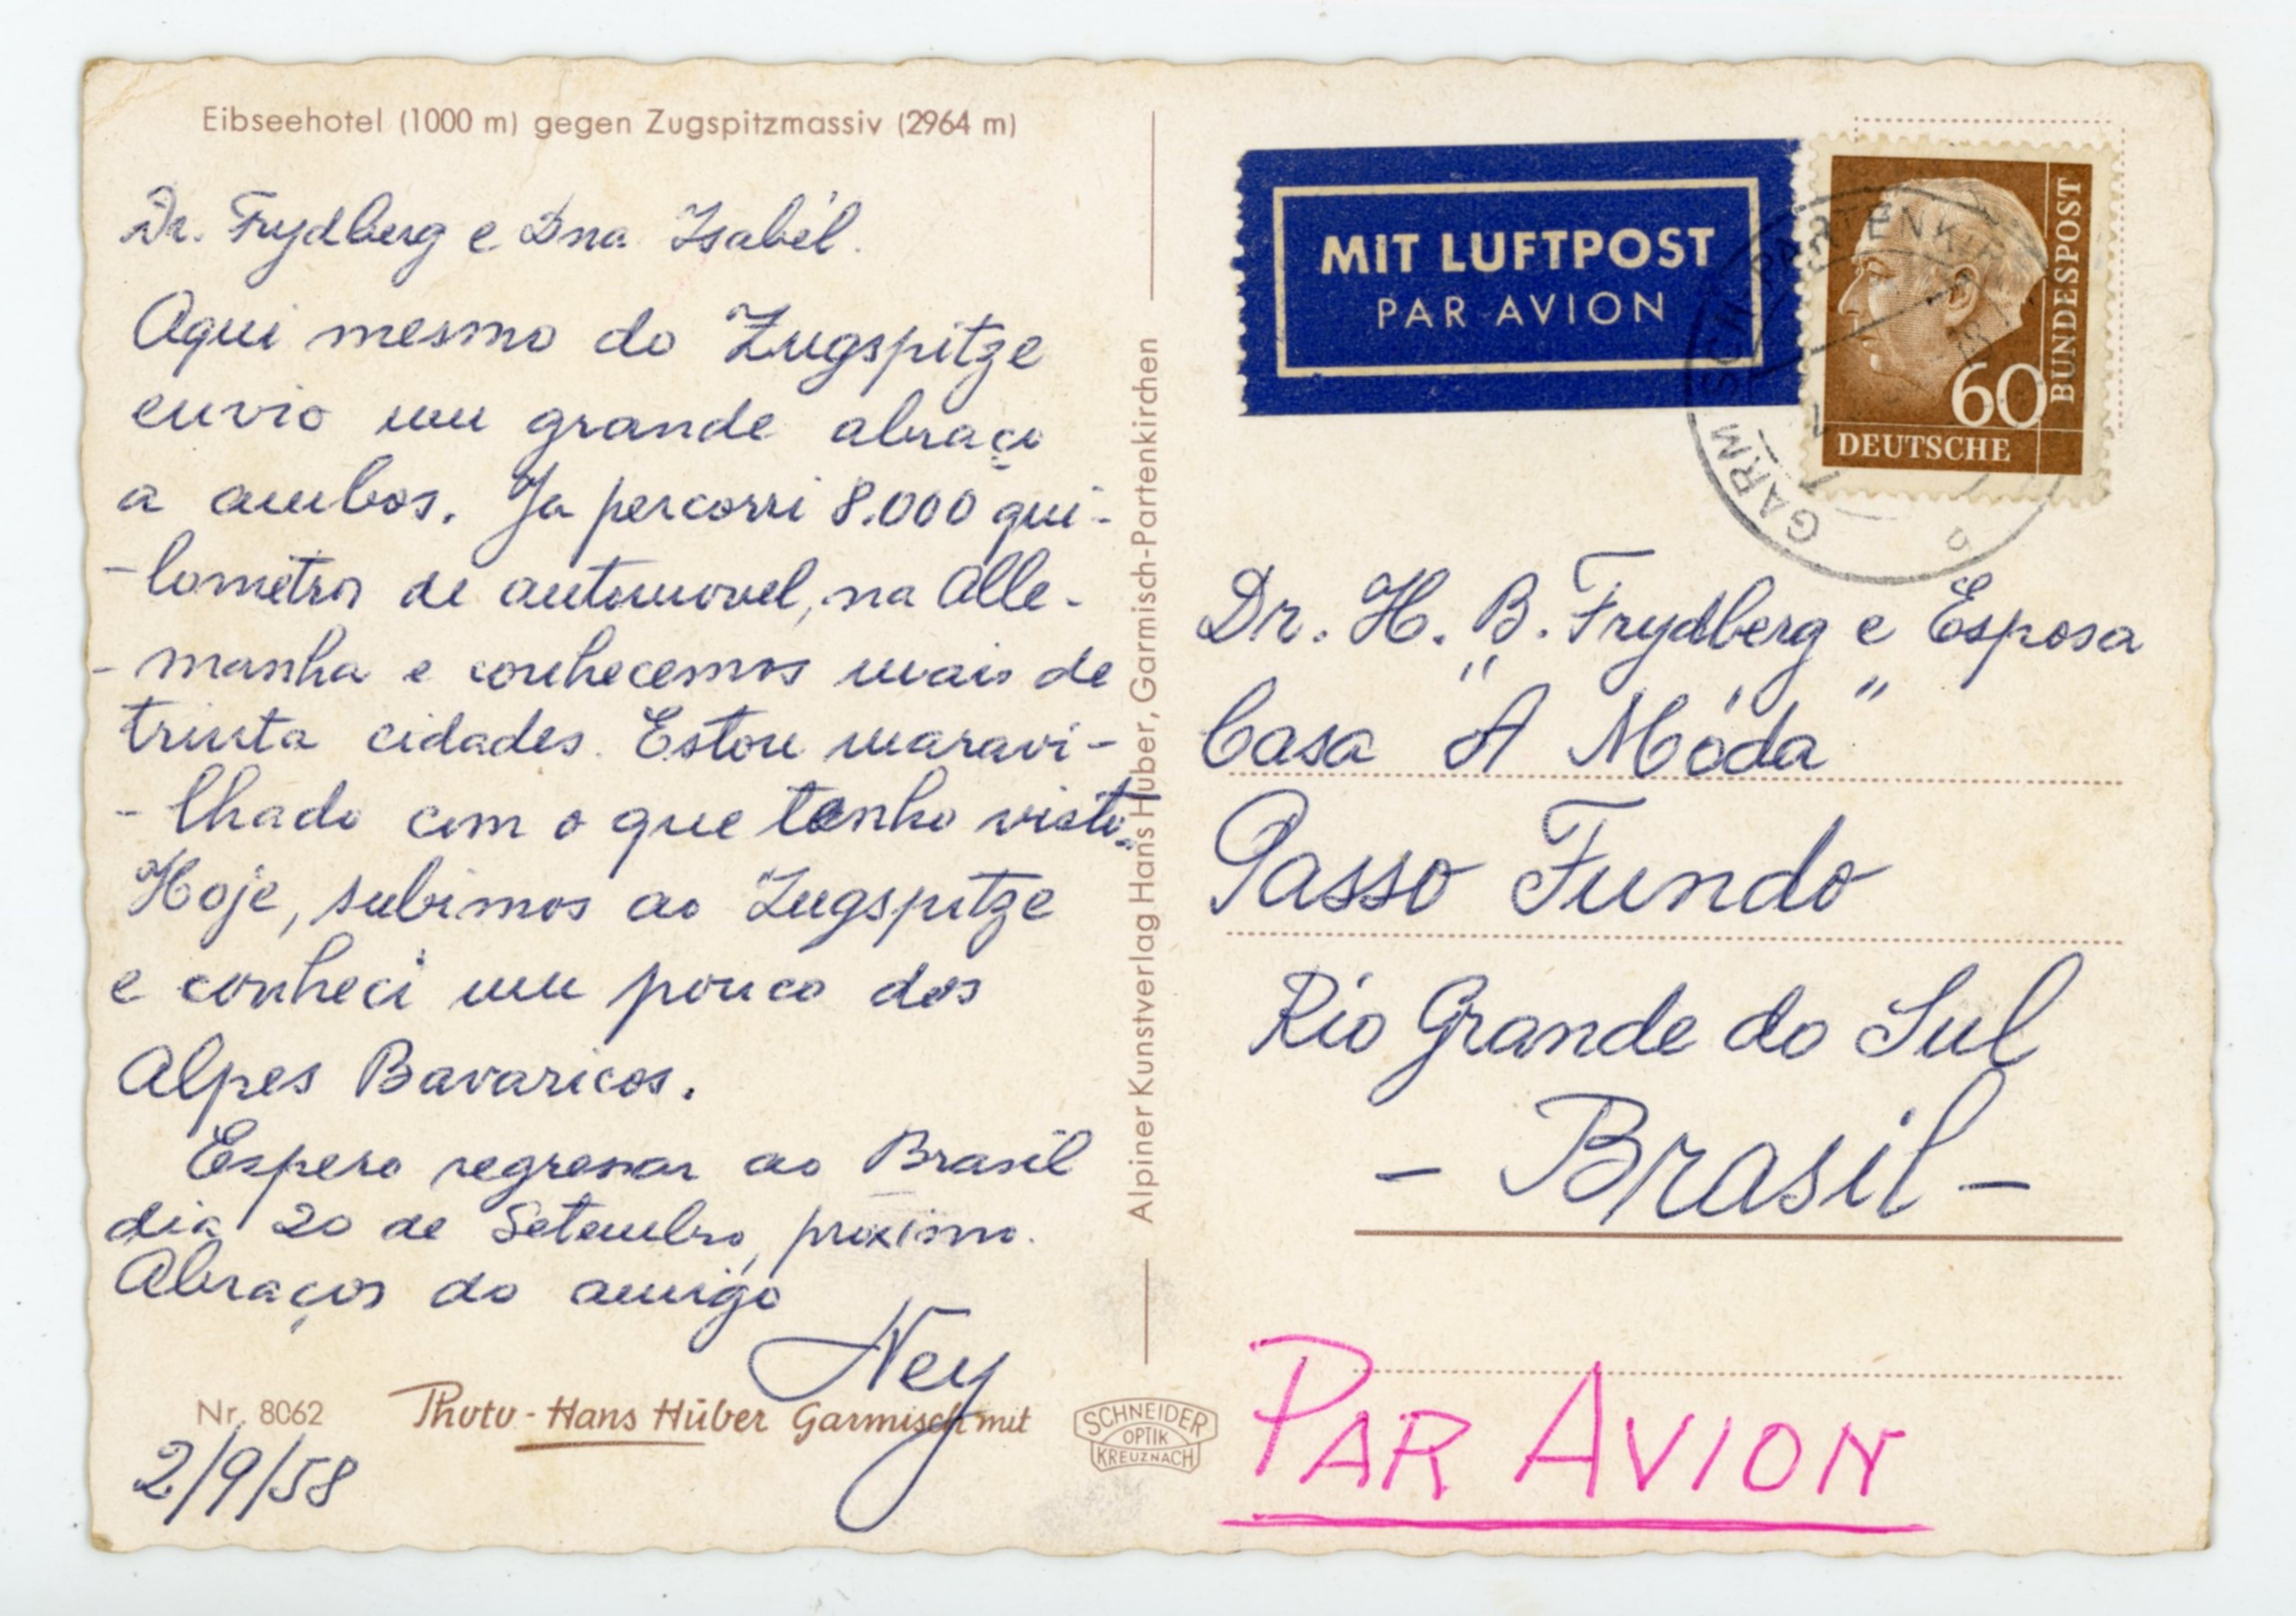 Eibseehotel (1000 m) gegen Zugspitzmassiv (2964 m)
Dr. Frydberg e Dna Isabél.
Aqui mesmo do Zugspitze
envio um grande abraço
a ambos. Ja percorri 8.000 qui-
-lometros de automovel, na Alle-
-manha e conhecemos mais de
trinta cidades. Estou maravi-
-lhado com o que tenho visto.
Hoje, subimos ao Zugspitze
e conheci um pouco dos
Alpes Bavaricos.
Espero regressar ao Brasil
dia 20 de Setembro, proximo.
Abraços do amigo
Ney
Nr. 8062
Photo - Hans Huber Garmisch mit
SCHNEIDER
OPTIK
KREUZNACH
2/9/58
Alpiner Kunstverlag Hans Huber, Garmisch-Partenkirchen
MIT LUFTPOST
PAR AVION
60
DEUTSCHE
BUNDESPOST
GARMISCH-PARTENKIRCHEN
Dr. H. B. Frydberg e Esposa
Casa "A Móda"
Passo Fundo
Rio Grande do Sul
- Brasil -
PAR AVION